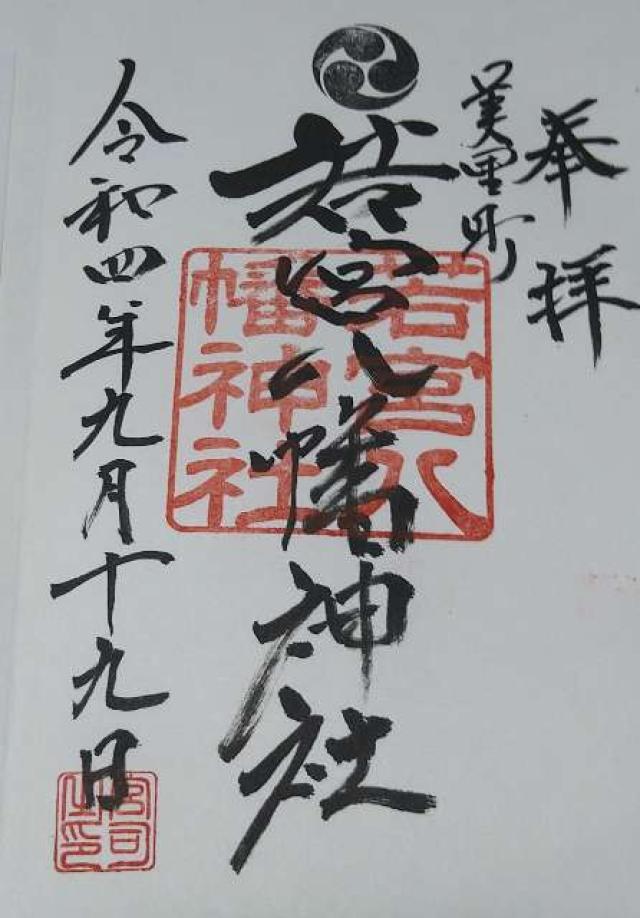 奉拝
美里町
若宮八幡神社
若宮八
幡神社
令和四年九月十九日
宮司
之印